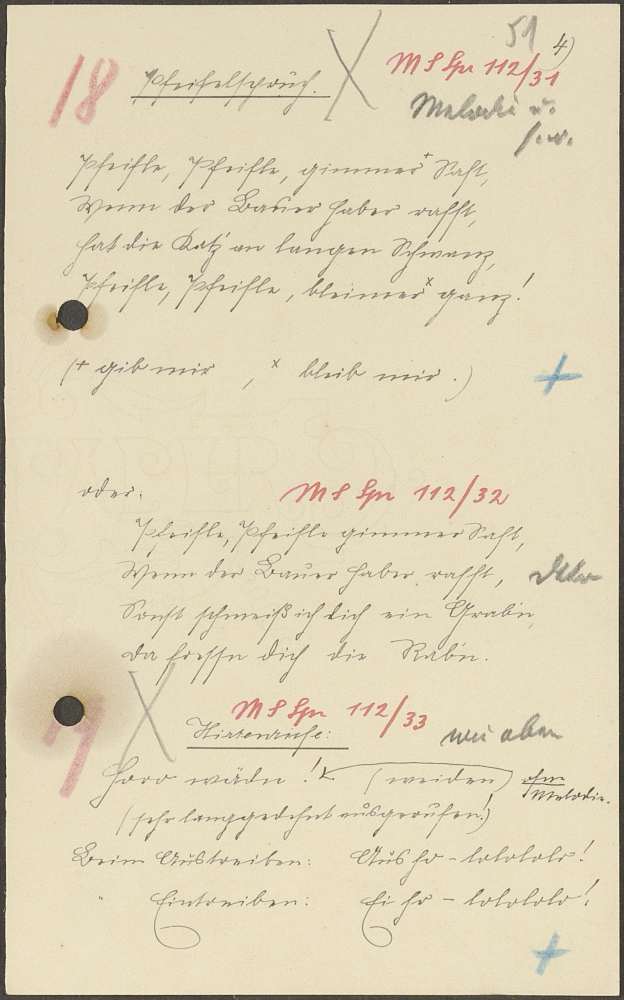 51 4)
18 Pfeifelspruch. MS Spr 112/31
Melodie u.
s.w.
Pfeifle, Pfeifle, gimmer⁺ Saft,
Wenn der Bauer Haber rafft,
hat die Katz an langen Schwanz,
Pfeifle, Pfeifle, bleimer ˣ ganz!
(+ gib mir , ˣ bleib mir.)
oder: MS Spr 112/32
Pfeifle, Pfeifle gimmer Saft,
Wenn der Bauer Haber rafft,
Sonst schmeiß ich dich ein Grab'n,
da fressn dich die Rab'n.
7 MS Spr 112/33
Hirtenrufe: wie oben
Horo wäden! (weiden) ohne
Melodie.
(sehr langgedehnt ausgerufen!)
Beim Austreiben: Aus ho-lolololo!
" Eintreiben: Ei ho-lolololo!